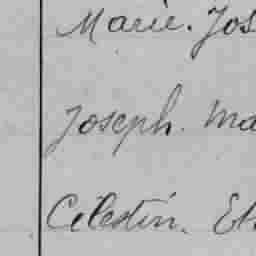 Marie. Jos
Joseph. Ma
Celestin. Et